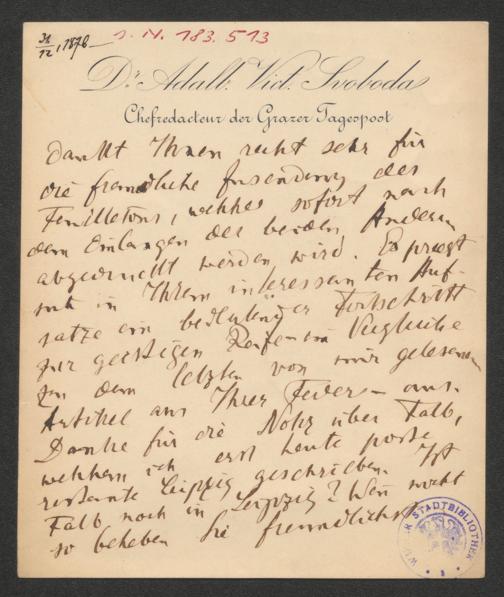 31/12, 1878
J. N. 183.513
Dr. Adalb. Vict. Svoboda
Chefredacteur der Grazer Tagespost
dankt Ihnen recht sehr für
die freundliche Zusendung des
Feuilletons, welches sofort nach
dem Einlangen des beiden Anderen
abgedruckt werden wird. Es prägt
sich in Ihrem interessanten Auf-
satze ein bedeutender Fortschritt
zur geistigen Reife im Vergleiche
zu dem letzten von mir gelesenen
Artikel aus Ihrer Feder – aus.
Danke für die Notiz über Falb,
welchem ich erst heute poste
restante Leipzig geschrieben. Ist
Falb noch in Leipzig? Wenn nicht
so beheben Sie freundlichst
STADTBIBLIOTHEK